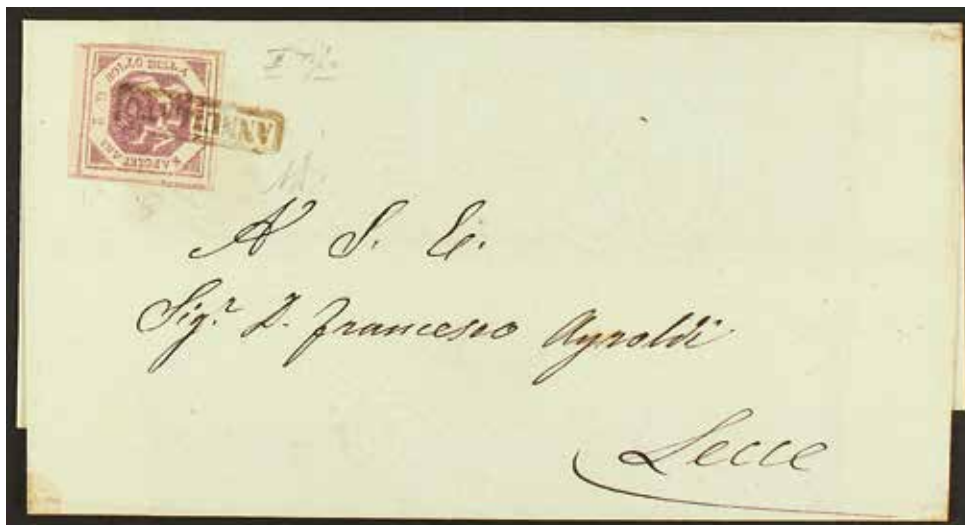 BOLLO DELLA
ANNULLATO
A S. E.
Sig.r D. Francesco Ayroldi
Lecce